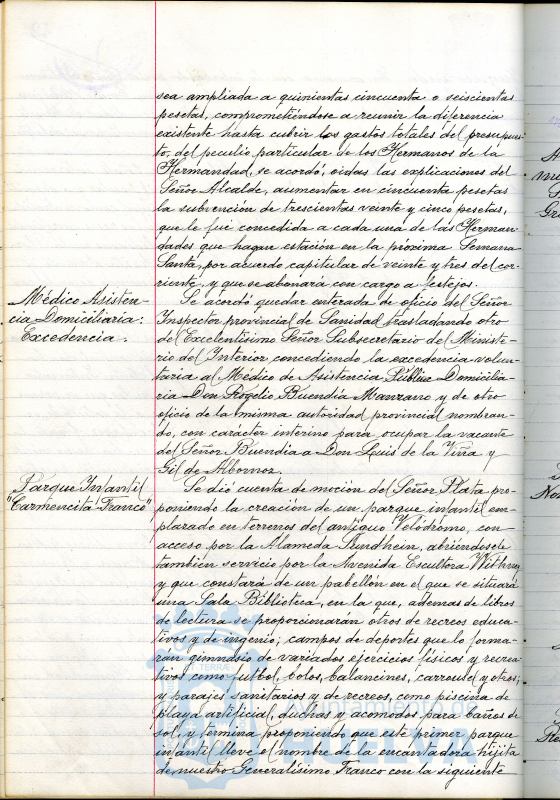 sea ampliada a quinientas cincuenta o seiscientas
pesetas, comprometiéndose a reunir la diferencia
existente hasta cubrir los gastos totales del presupues-
to, del peculio particular de los Hermanos de la
Hermandad, se acordó, oidas las explicaciones del
Señor Alcalde, aumentar en cincuenta pesetas
la subvención de trescientas veinte y cinco pesetas,
que le fue concedida a cada una de las Herman-
dades que hagan estación en la próxima Semana
Santa, por acuerdo capitular de veinte y tres del cor-
riente, y que se abonará con cargo a festejos.
Médico Asisten-
cia Domiciliaria:
Excedencia.
Se acordó quedar enterada de oficio del Señor
Inspector provincial de Sanidad trasladando otro
del Excelentísimo Señor Subsecretario del Ministe-
rio del Interior, concediendo la excedencia volun-
taria al Médico de Asistencia Pública Domicilia-
ria Don Rogelio Buendia Manzano y de otro
oficio de la misma autoridad provincial nombran-
do, con carácter interino para ocupar la vacante
del Señor Buendia a Don Luis de la Viña y
Gil de Albornoz.
Parque Infantil
"Carmencita Franco"
Se dió cuenta de moción del Señor Plata pro-
poniendo la creación de un parque infantil em-
plazado en terrenos del antiguo Velódromo, con
acceso por la Alameda Sundhein, abriéndosele
tambien servicio por la Avenida Escultora
y que constará de un pabellón en el que se situará
una Sala Biblioteca, en la que, ademas de libros
de lectura se proporcionarán otros de recreos educa-
tivos y de ingenio; campos de deportes que lo forma-
rán gimnasio de variados ejercicios físicos y recrea-
tivos como futbol, bolos, balancines, carrousel y otros;
y parajes sanitarios y de recreos, como piscina de
playa artificial, duchas y acomodos para baños de
sol, y termina proponiendo que este primer parque
infantil lleve el nombre de la encantadora hijita
de nuestro Generalísimo Franco con la siguiente
Ayuntamiento de
HUELVA